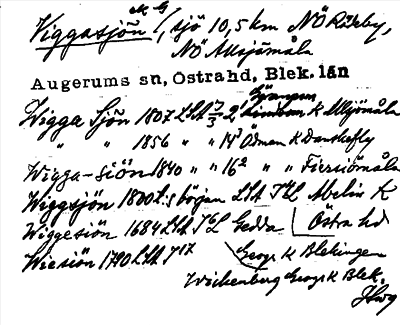 Viggasjön, sjö 10,5 km NÖ Rödeby,
NÖ Alljömåla
Augerums sn, Östra hd, Blek. län
Wigga Sjön 1807 LSA 2 K Alljömåla
" " 1856 " " 14 Ödman K Danskefly
Wigga-siön 1840 " " 16² " " Fiersiömåla
Wiggsjön 1800t:s början LSA Abelin K
Wiggesiön 1684 LSA Gedda Östra hd
Wiesiön 1790 LSA Geogr K Blekingen
Wickenberg Geogr K Blek.